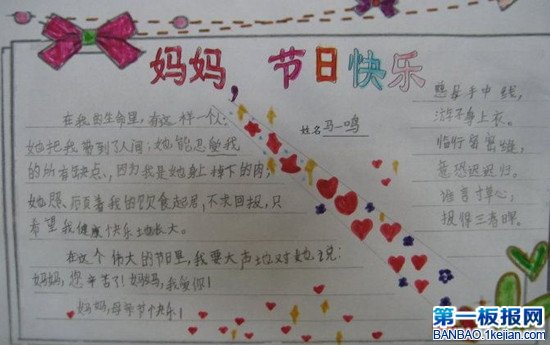 妈妈，节日快乐
在我的生命里，有这样一个人：
她把我带到了人间；她能忍受我
的所有缺点，因为我是她身上掉下的肉；
她照顾着我的饮食起居，不求回报，只
希望我健康快乐地长大。
在这个伟大的节日里，我要大声地对她说：
妈妈，您辛苦了！妈妈，我爱你！
妈妈，母亲节快乐！
姓名 马一鸣
慈母手中线，
游子身上衣。
临行密密缝，
意恐迟迟归。
谁言寸草心，
报得三春晖。
第一板报网
BANBAO.1kejian.com